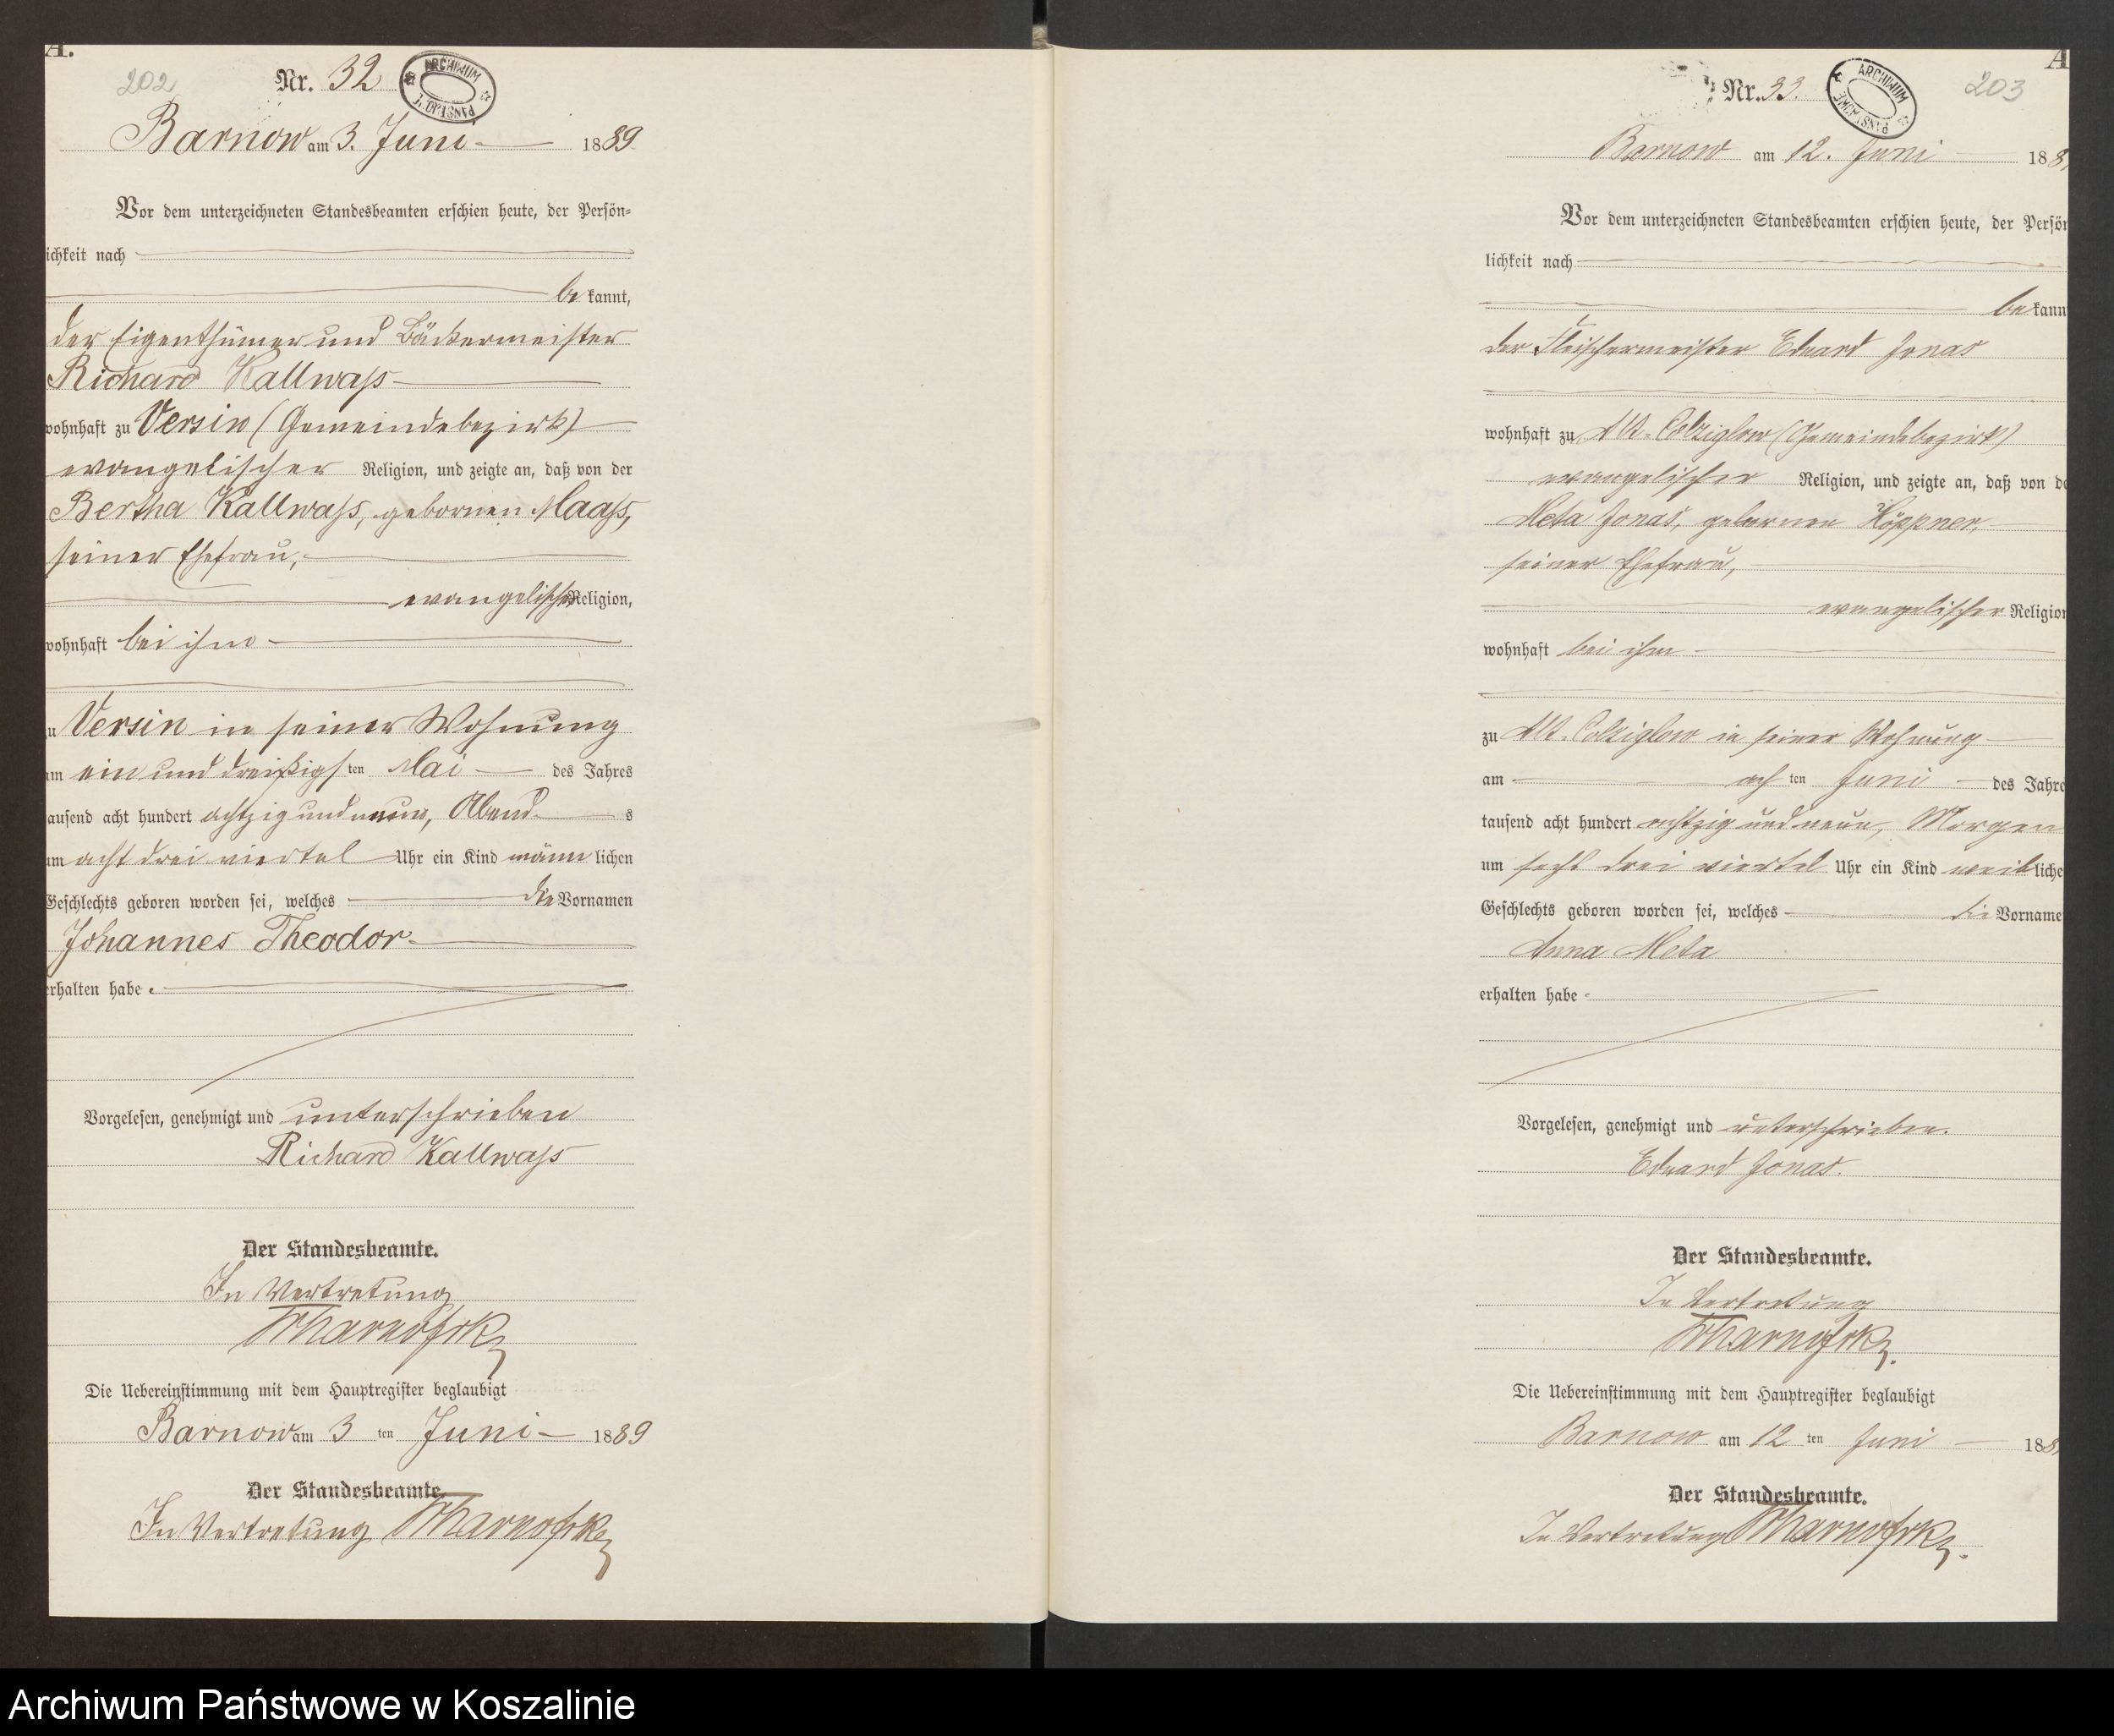 A.
202
Nr. 32
ARCHIWUM
Barnow am 3. Juni 1889
Vor dem unterzeichneten Standesbeamten erschien heute, der Persön=
ichkeit nach
be kannt,
der Eigenthümer und Bäckermeister
Richard Kallwaß
wohnhaft zu Versin (Gemeindebezirk)
evangelischer Religion, und zeigte an, daß von der
Bertha Kallwaß, gebornen Maaß,
seiner Ehefrau,
evangelischer Religion,
wohnhaft bei ihm
zu Versin in seiner Wohnung
am ein und dreißigsten Mai des Jahres
tausend acht hundert achtzig und neun, Abend s
um acht drei viertel Uhr ein Kind männ lichen
Geschlechts geboren worden sei, welches die Vornamen
Johannes Theodor
erhalten habe.
Vorgelesen, genehmigt und unterschrieben
Richard Kallwaß
Der Standesbeamte.
In Vertretung
Die Uebereinstimmung mit dem Hauptregister beglaubigt
Barnow am 3 ten Juni 1889
Der Standesbeamte
In Vertretung
A
Nr. 33.
ARCHIWUM
203
Barnow am 12. Juni 188
Vor dem unterzeichneten Standesbeamten erschien heute, der Persön
lichkeit nach
be kann
der Fleischermeister Eduard Jonas
wohnhaft zu Alt-Colziglow (Gemeindebezirk)
evangelischer Religion, und zeigte an, daß von de
Meta Jonas, gebornen Höppner,
seiner Ehefrau,
evangelischer Religion
wohnhaft bei ihm
zu Alt-Colziglow in seiner Wohnung
am ach ten Juni des Jahre
tausend acht hundert achtzig und neun, Morgen
um sechs drei viertel Uhr ein Kind weib liche
Geschlechts geboren worden sei, welches die Vorname
Anna Meta
erhalten habe
Vorgelesen, genehmigt und unterschrieben.
Eduard Jonas.
Der Standesbeamte.
In Vertretung
Die Uebereinstimmung mit dem Hauptregister beglaubigt
Barnow am 12 ten Juni 188
Der Standesbeamte.
In Vertretung
Archiwum Państwowe w Koszalinie